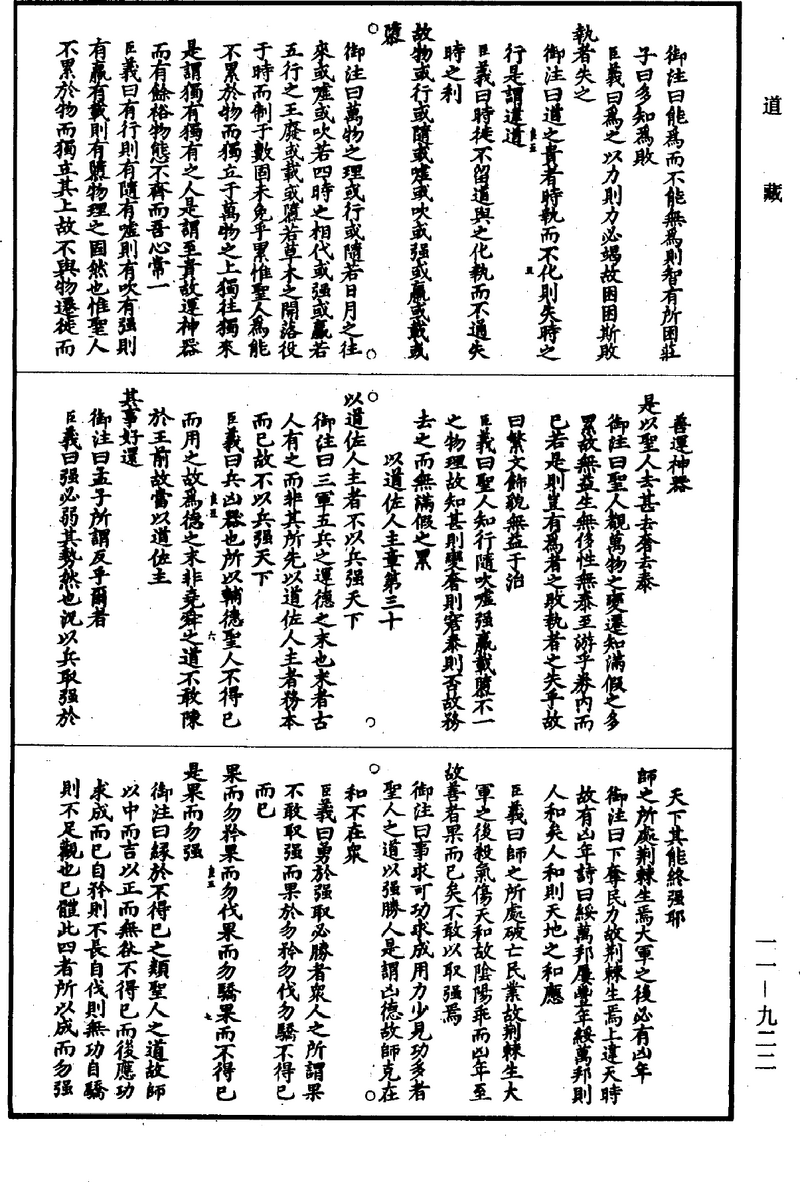 道藏
御注曰能爲而不能無爲則智有所困莊
子曰多知爲敗
臣義曰爲之以力則力必竭故困困斯敗
執者失之
御注曰道之貴者時執而不化則失時之
行是謂違道
臣義曰時徙不留道與之化執而不通失
時之利
故物或行或隨或噓或吹或强或羸或載或
隳
御注曰萬物之理或行或隨若日月之往
來或噓或吹若四時之相代或强或羸若
五行之王廢或載或隳若草木之開落役
于時而制于數固未免乎累惟聖人爲能
不累於物而獨立于萬物之上獨往獨來
是謂獨有獨有之人是謂至貴故運神器
而有餘裕物態不齊而吾心常一
臣義曰有行則有隨有噓則有吹有强則
有羸有載則有隳物理之固然也惟聖人
不累於物而獨立其上故不與物遷徙而
善運神器
是以聖人去甚去奢去泰
御注曰聖人觀萬物之變遷知滿假之多
累故無益生無侈性無泰至游乎券內而
已若是則豈有爲者之敗執者之失乎故
曰繁文飾貌無益于治
臣義曰聖人知行隨吹噓强羸載隳不一
之物理故知甚則變奢則窮泰則否故務
去之而無滿假之累
以道佐人主章第三十
以道佐人主者不以兵强天下
御注曰三軍五兵之運德之末也末者古
人有之而非其所先以道佐人主者務本
而已故不以兵强天下
臣義曰兵凶器也所以輔德聖人不得已
而用之故爲德之末非堯舜之道不敢陳
於王前故當以道佐主
其事好還
御注曰孟子所謂反乎爾者
臣義曰强必弱其勢然也況以兵取强於
天下其能終强耶
師之所處荆棘生焉大軍之後必有凶年
御注曰下奪民力故荆棘生焉上違天時
故有凶年詩曰綏萬邦屢豐年綏萬邦則
人和矣人和則天地之和應
臣義曰師之所處破亡民業故荆棘生大
軍之後殺氣傷天和故陰陽乖而凶年至
故善者果而已矣不敢以取强焉
御注曰事求可功求成用力少見功多者
聖人之道以强勝人是謂凶德故師克在
和不在衆
臣義曰勇於强取必勝者衆人之所謂果
不敢取强而果於勿矜勿伐勿驕不得已
而已
果而勿矜果而勿伐果而勿驕果而不得已
是果而勿强
御注曰緣於不得已之類聖人之道故師
以中而言以正而無敵不得已而後應功
求成而已自矜則不長自伐則無功自驕
則不足觀也已體此四者所以成而勿强
一一—九二二